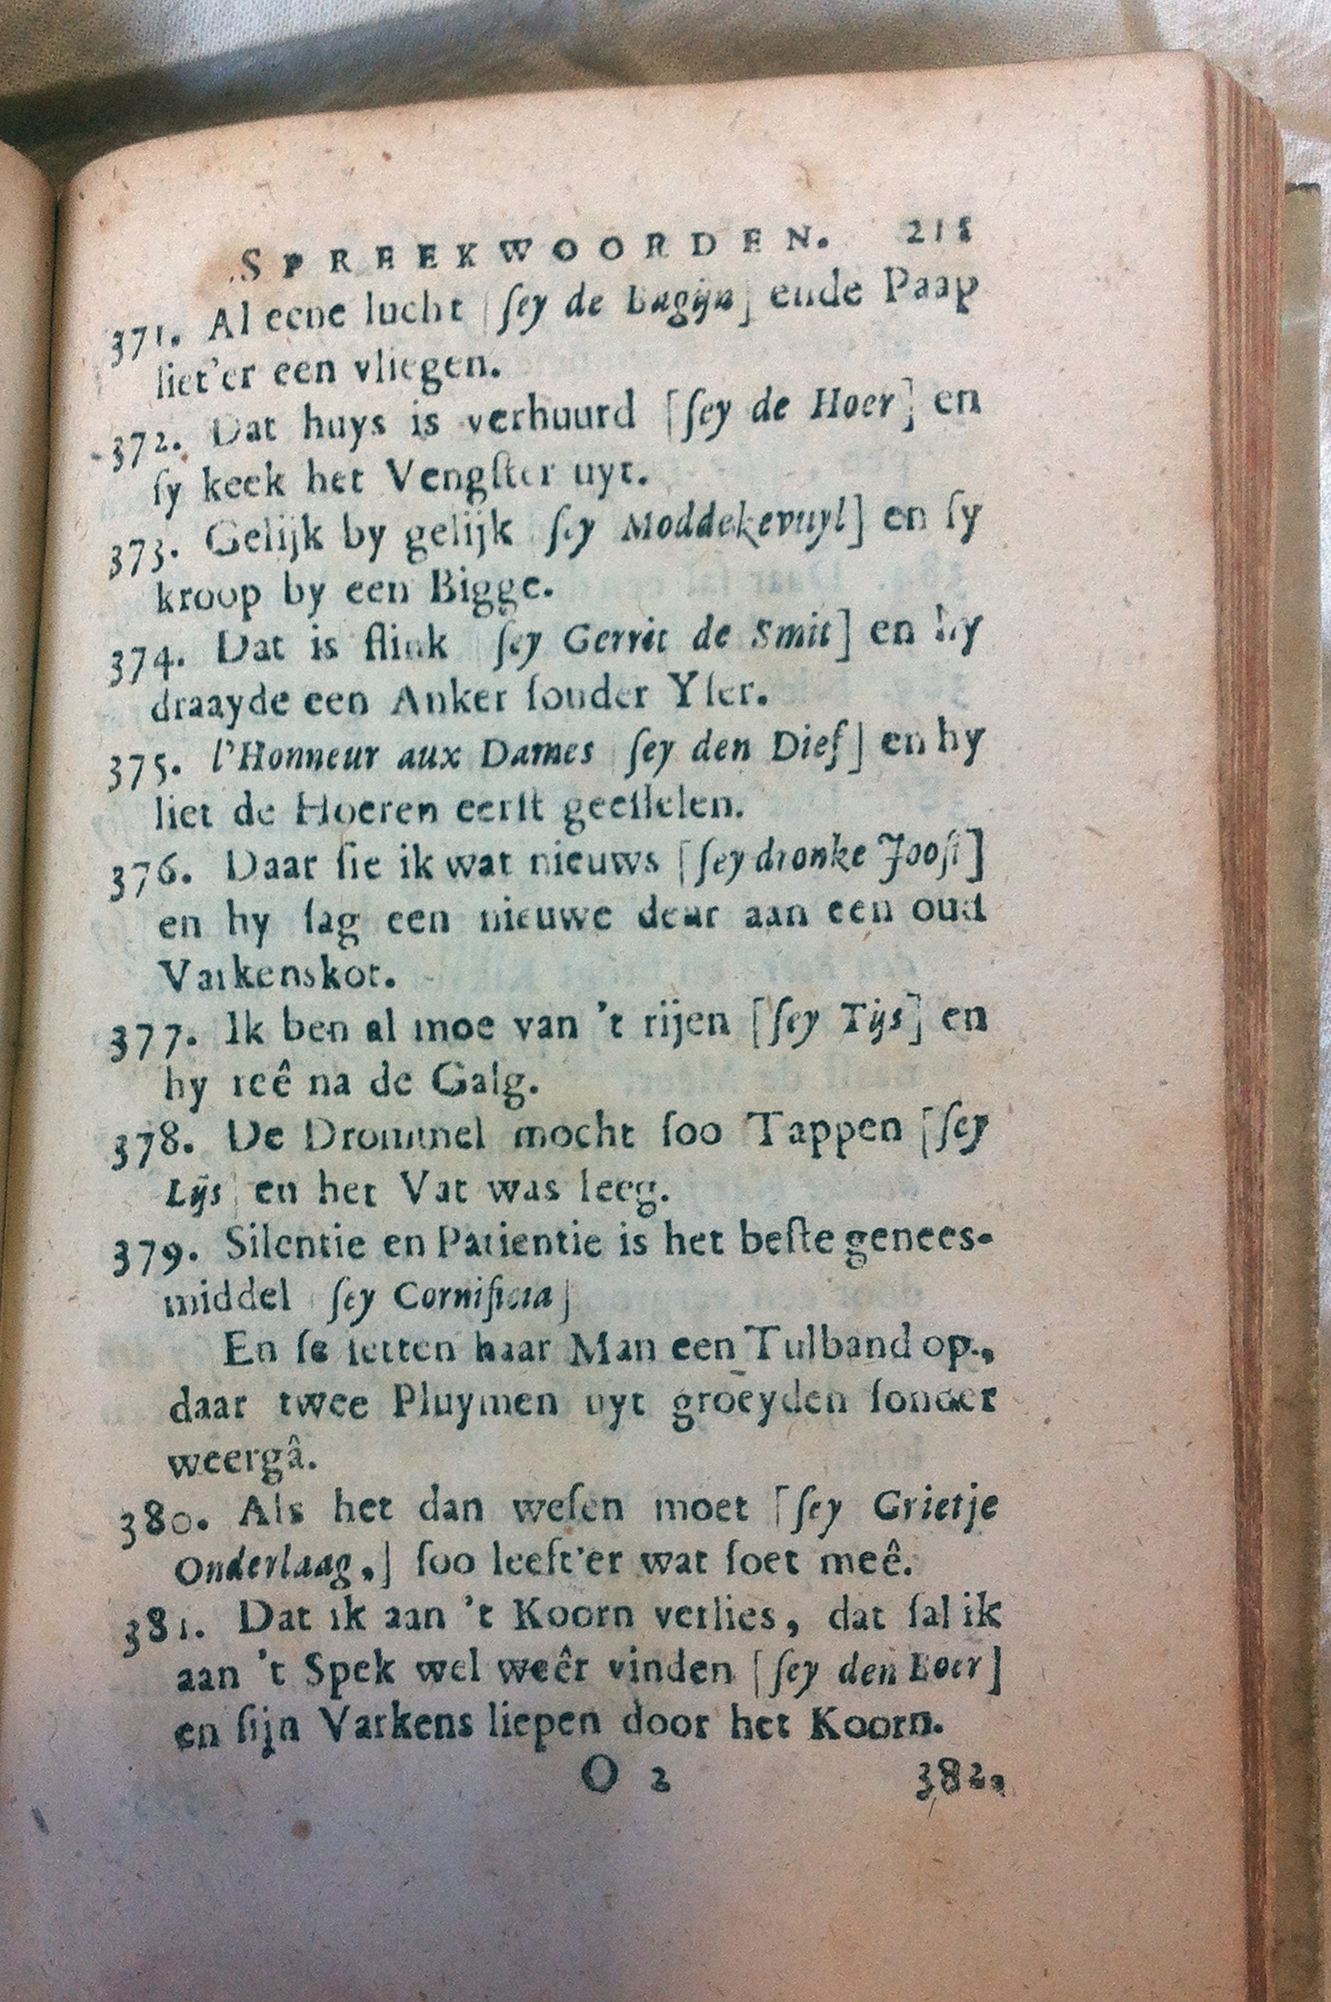 SPREEKWOORDEN. 215
371. Al eene lucht [ſey de Bagijn] ende Paap
liet'er een vliegen.
372. Dat huys is verhuurd [ſey de Hoer] en
ſy keek het Vengſter uyt.
373. Gelijk by gelijk [ſey Moddekevuyl] en ſy
kroop by een Bigge.
374. Dat is flink [ſey Gerrit de Smit] en hy
draayde een Anker ſonder Yſer.
375. l'Honneur aux Dames [ſey den Dief] en hy
liet de Hoeren eerſt geeſſelen.
376. Daar ſie ik wat nieuws [ſey dronke Jooſt]
en hy ſag een nieuwe deur aan een oud
Varkenskot.
377. Ik ben al moe van 't rijen [ſey Tijs] en
hy reê na de Galg.
378. De Drommel mocht ſoo Tappen [ſey
Lijs] en het Vat was leeg.
379. Silentie en Patientie is het beſte genees-
middel [ſey Cornificia]
En ſe ſetten haar Man een Tulband op,
daar twee Pluymen uyt groeyden ſonder
weergâ.
380. Als het dan weſen moet [ſey Grietje
Onderlaag,] ſoo leeft'er wat ſoet meê.
381. Dat ik aan 't Koorn verlies, dat ſal ik
aan 't Spek wel weêr vinden [ſey den Boer]
en ſijn Varkens liepen door het Koorn.
O 2 382.